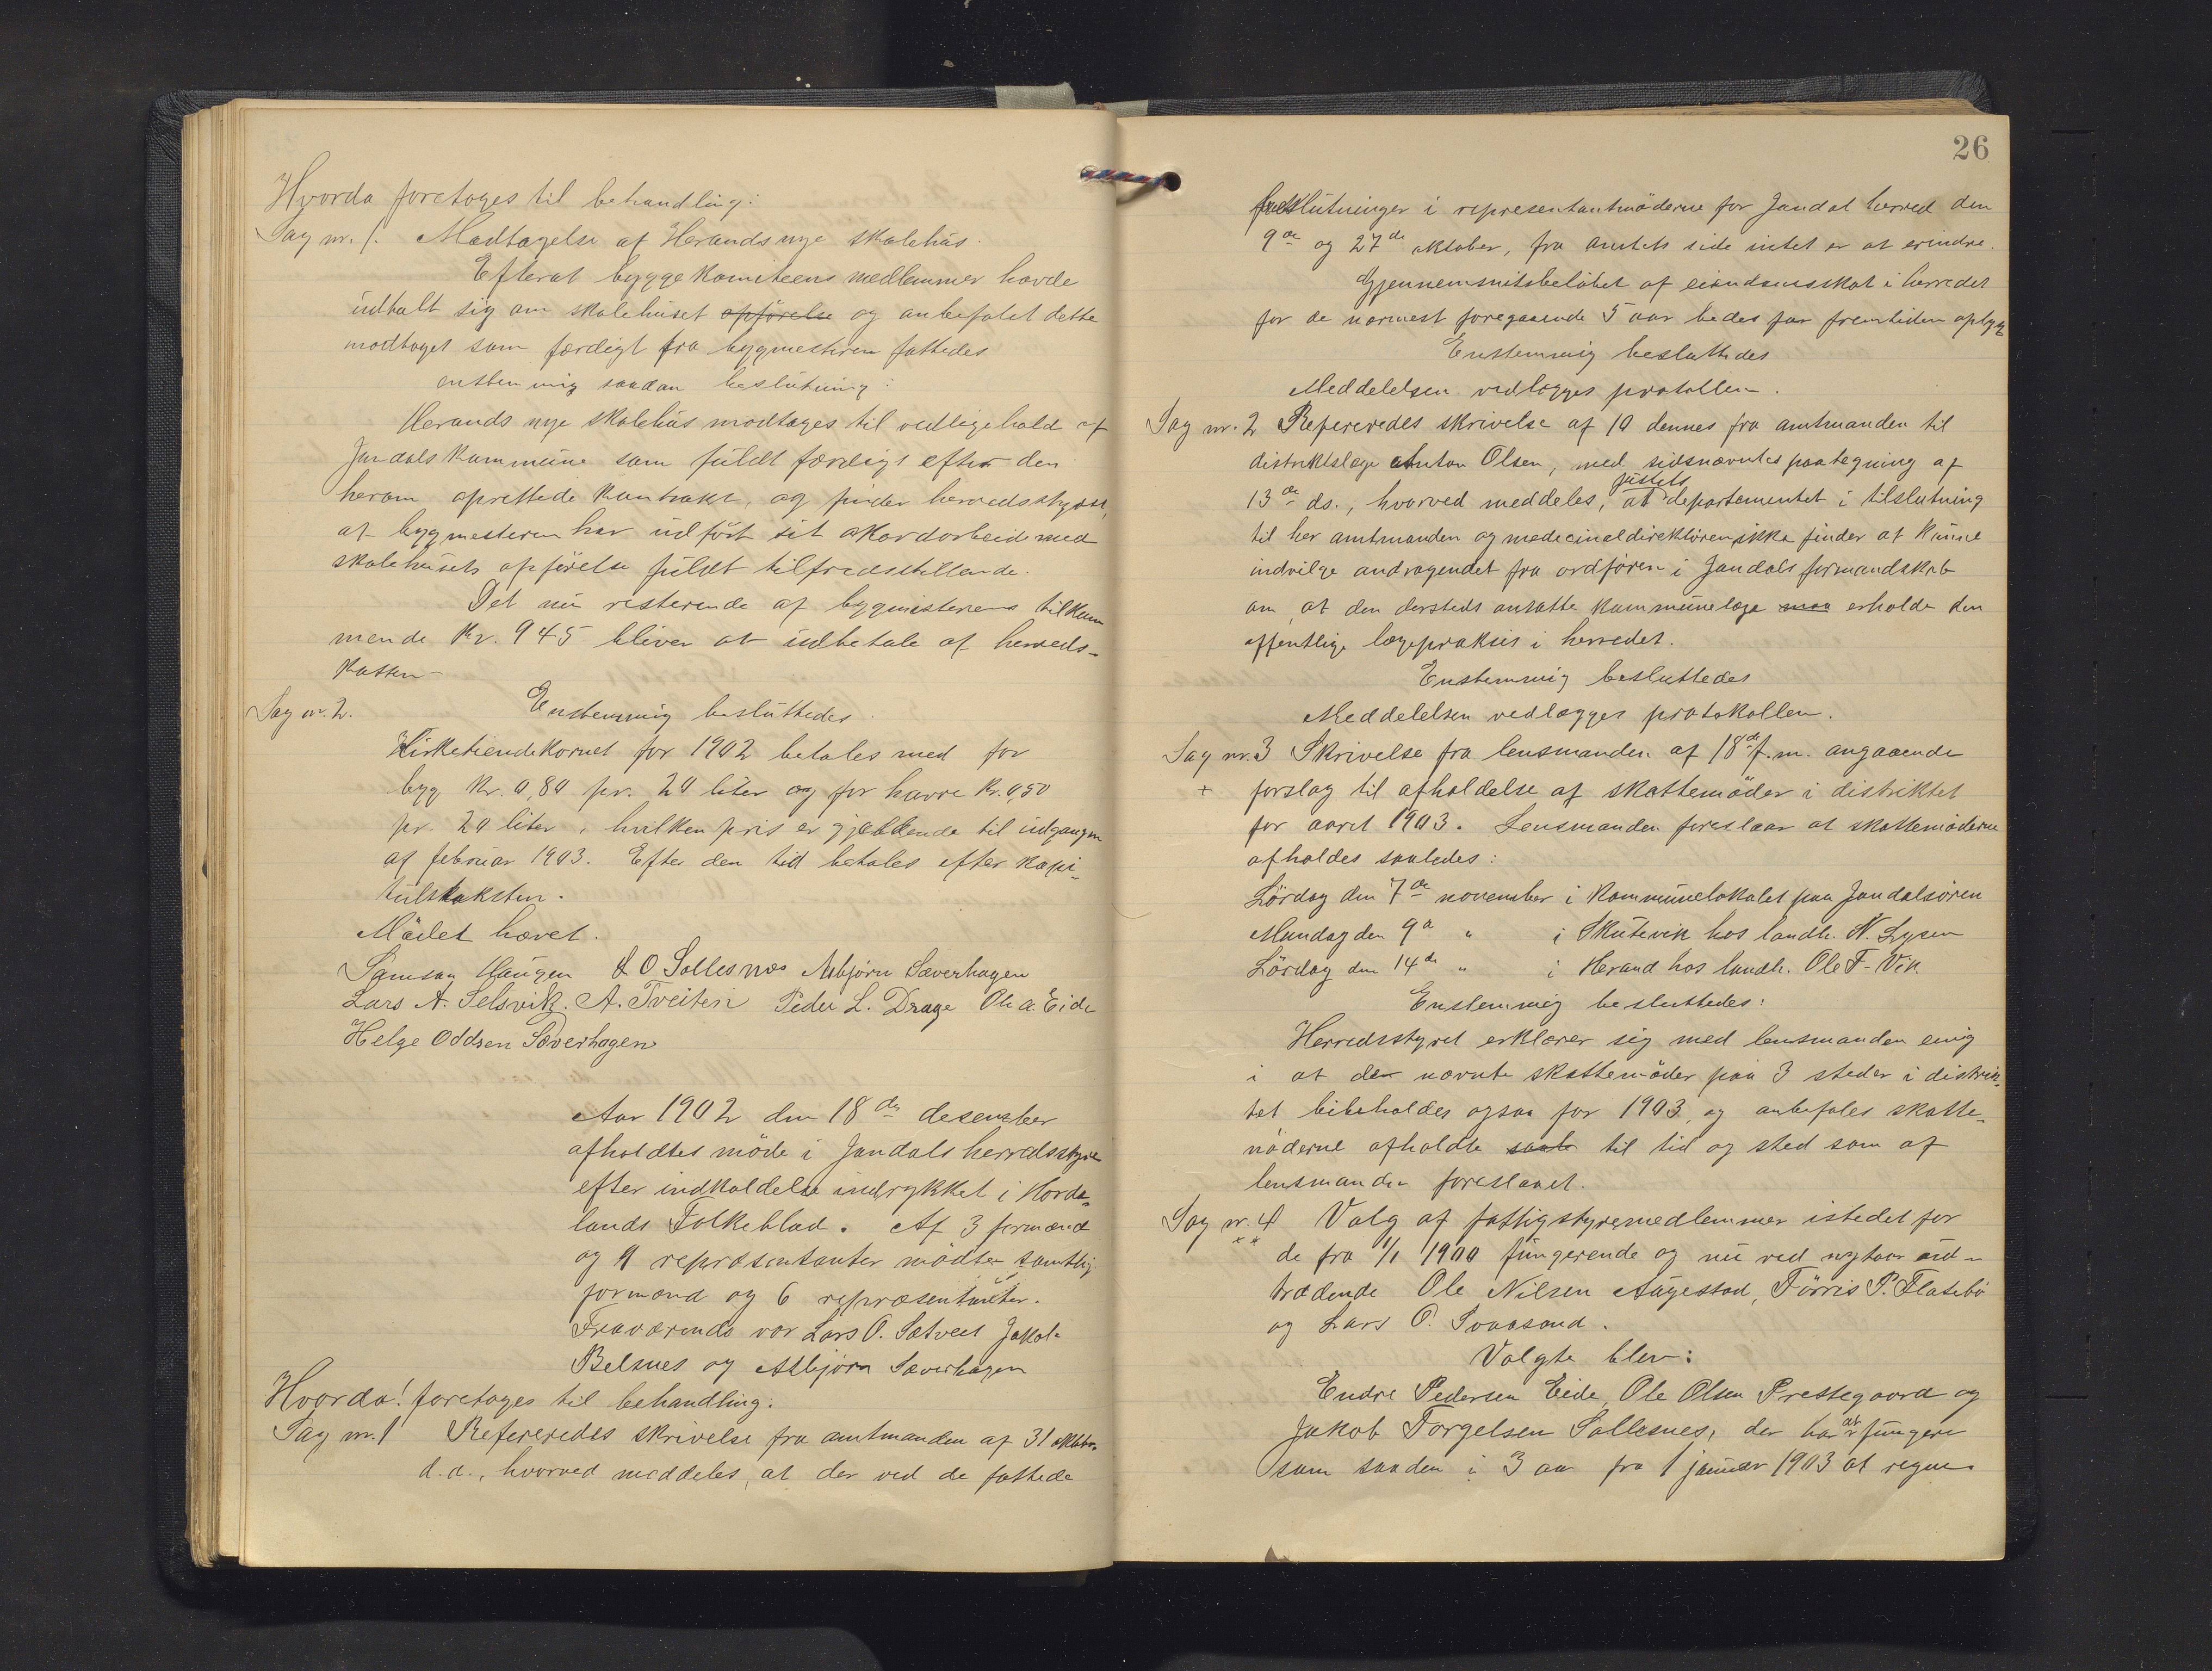 Hvorda foretoges til behandling:
Sag nr. 1. Modtagelse af Herands nye skolehus.
Efterat byggekomiteens medlemmer havde
udtalt sig om skolehuset opförelse og anbefalet dette
modtaget som færdigt fra bygmesteren fattedes
enstemmig saadan beslutning:
Herands nye skolehus modtages til vedligehold af
Jondals kommune som fuldt færdigt efter den
herom oprettede kontrakt, og finder herredsstyret,
at bygmesteren har udfört sit akordarbeide med
skolehusets opförelse fuldt tilfredsstillende.
Det nu resterende af bygmesterens tilkom
mende kr. 945 bliver at udbetale af herreds-
kassen-
Sag nr. 2. Enstemmig besluttedes
Kirketiendekornet for 1902 betales med for
byg kr. 0,80 pr. 20 liter og for havre kr. 0,50
pr. 20 liter, hvilken pris er gjældende til udgangen
af februar 1903. Efter den tid betales efter kapi-
tulstaksten.
Mödet hævet.
Samson Haugen O Sollesnæs Asbjörn Sæverhagen
Lars A. Selsvik. A. Tveiten Peder L. Drage Ole A. Eide
Helge Oddsen Sæverhagen
Aar 1902 den 18de desember
afholdtes möde i Jondals herredsstyre
efter indkaldelse indrykket i Horda-
lands Folkeblad. Af 3 formænd
og 9 repræsentanter mödte samtlig
formænd og 6 repræsentanter.
Fraværende var Lars O. Sætveit Jakob
Belsnes og Asbjörn Sæverhagen
Hvorda! foretoges til behandling:
Sag nr. 1 Refereredes skrivelse fra amtmanden af 31 oktbr.
d.a., hvorved meddeles, at der ved de fattede
26
beslutninger i representantmöderne for Jondal herred den
9de og 27de oktober, fra amtets side intet er at erindre.
Gjennemsnitsbelöbet af eiendomsskat i herredet
for de nærmest foregaaende 5 aar bedes for fremtiden oplyst
Enstemmig besluttedes
Meddelelsen vedlægges protokollen.
Sag nr. 2 Refereredes skrivelse af 10 dennes fra amtmanden til
distriktslæge Anton Olsen, med sidsnævntes paategning af
justits
13de ds., hvorved meddeles, at departementet i tilslutning
til her amtmanden og medicinaldirektören ikke finder at kunne
indvilge andragendet fra ordfören i Jondals formandskab
om at den dersteds ansatte kommunelæge maa erholde den
offentlige lægepraksis i herredet.
Enstemmig besluttedes
Meddelelsen vedlægges protokollen.
Sag nr. 3 Skrivelse fra lensmanden af 18de f.m. angaaende
+ forslag til afholdelse af skattemöder i distriktet
for aaret 1903. Lensmanden foreslaar at skattemöderne
afholdes saaledes:
Lördag den 7de november i kommunelokalet paa Jondalsören
Mandag den 9de " i Skutevik hos landh. N. Lysen
Lördag den 14de " i Herand hos landh. Ole T. Vik
Enstemmig besluttedes:
Herredsstyret erklærer sig med lensmanden enig
i at de nævnte skattemöder paa 3 steder i distrik-
tet bibeholdes ogsaa for 1903, og anbefales skatte-
möderne afholdte saale til tid og sted som af
lensmanden foreslaaet.
Sag nr. 4 Valg af fattigstyremedlemmer istedet for
x x de fra 1/1 1900 fungerende og nu ved nytaar ud-
trædende Ole Nilsen Augestad, Törris P. Flatebö
og Lars O. Svaasand.
Valgte blev:
Endre Pedersen Eide, Ole Olsen Prestegaard og
at
Jakob Torgelsen Sollesnes, der har fungere
som saaden i 3 aar fra 1 januar 1903 at regne